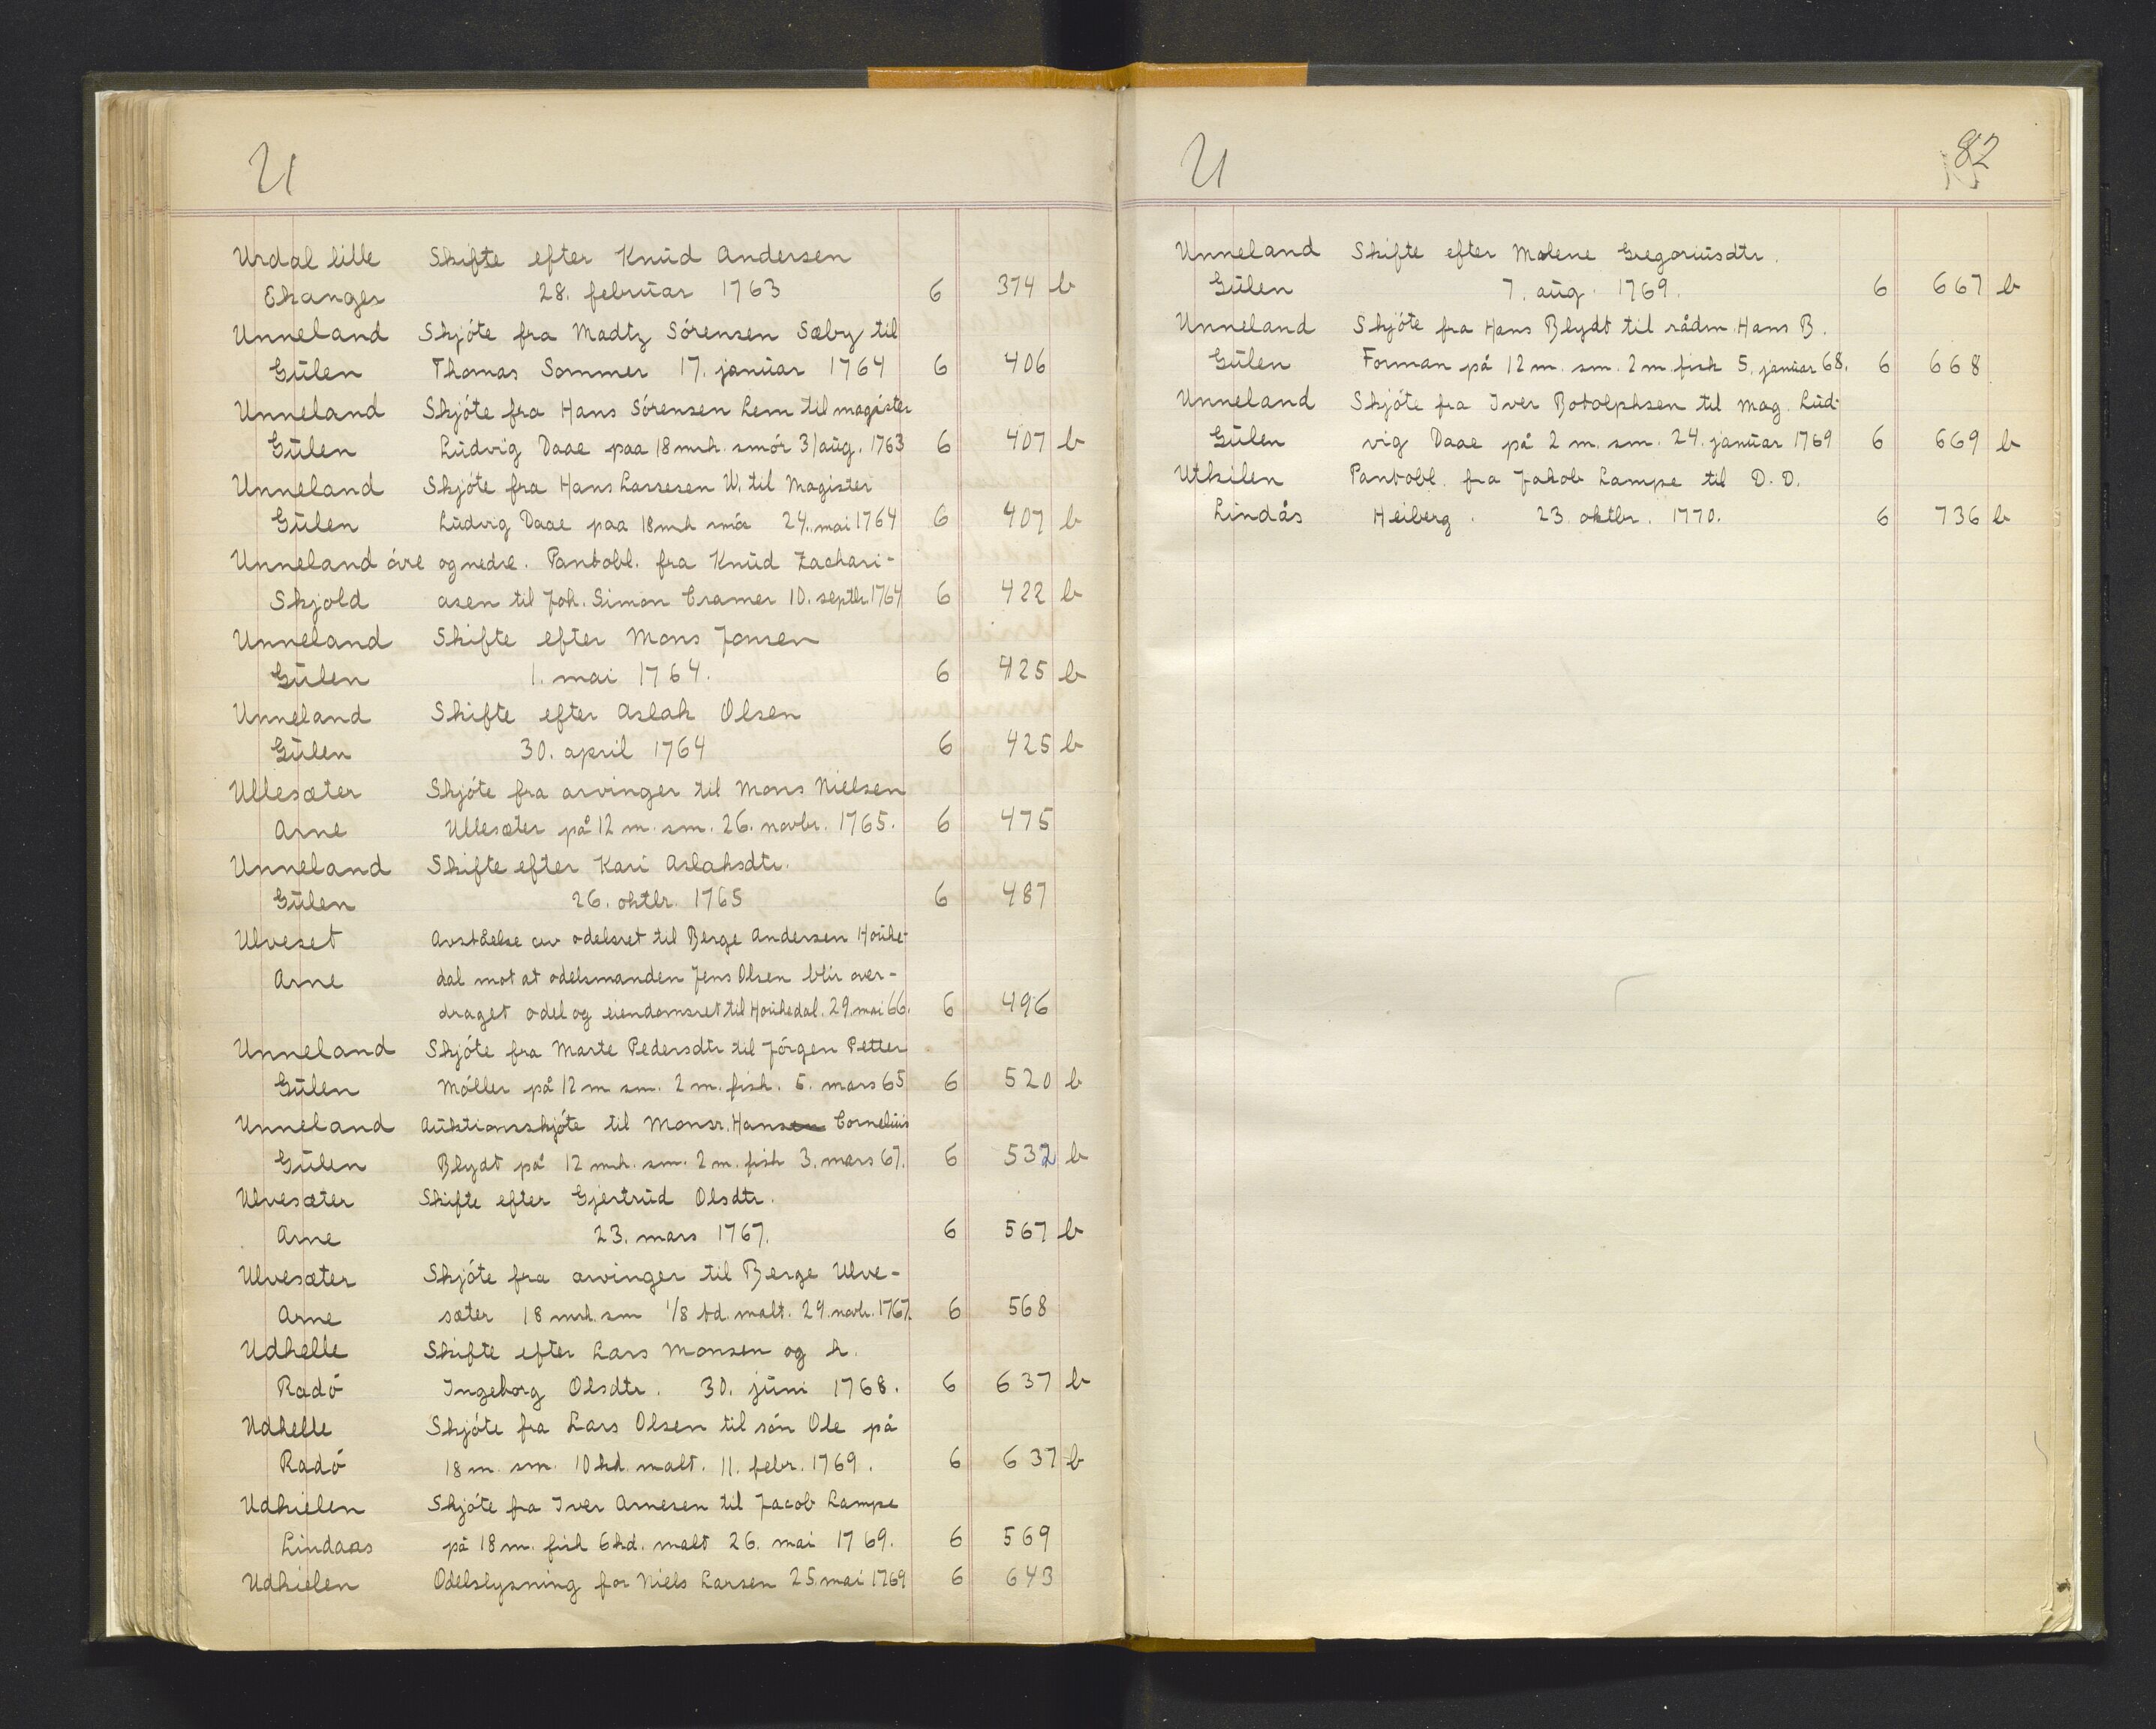 U
Urdal lille Skifte efter Knūd Andersen
Ekanger 28. februar 1763 6 374 b
Unneland Skjóte fra Madtz Sórensen Sæby til
Gūlen Thomas Sommer 17. janūar 1764 6 406
Unneland Skjóte fra Hans Sórensen Lem til magister
Gūlen Lūdvig Daae paa 18 mrk. smór 31 aūg. 1763 6 407 b
Unneland Skjóte fra Hans Larsesen U. til Magister
Gūlen Lūdvig Daae paa 18 mk smór 24. mai 1764 6 407 b
Unneland óvre og nedre. Pantobl. fra Knūd Zachari-
Skjold asen til Joh. Simon Cramer 10. septbr. 1764 6 422 b
Unneland Skifte efter Mons Jonsen
Gūlen 1. mai 1764. 6 425 b
Unneland Skifte efter Aslak Olsen
Gūlen 30. april 1764 6 425 b
Ullesæter Skjóte fra arvinger til Mons Nielsen
Arne Ullesæter på 12 m. sm. 26. novbr. 1765. 6 475
Unneland Skifte efter Kari Aslaksdtr.
Gūlen 26. oktbr. 1765 6 487
Ulveset Avståelse av odelsret til Berge Andersen Hoūke-
Arne dal mot at odelsmanden Jens Olsen blir over-
draget odel og eiendomsret til Hoūkedal. 29. mai 66. 6 496
Unneland Skjóte fra Marte Pedersdtr til Jórgen Petter
Gūlen Móller på 12 m sm. 2 m. fisk. 5. mars 65 6 520 b
Unneland Aūktionsskjóte til Monsr. Hansen Cornelius
Gūlen Blydt på 12 mrk. sm. 2 m. fisk 3. mars 67. 6 532 b
Ulvesæter Skifte efter Gjertrūd Olsdtr.
Arne 23. mars 1767. 6 567 b
Ulvesæter Skjóte fra arvinger til Berge Ulve-
Arne sæter 18 mrk. sm 1/8 td. malt. 29. novbr. 1767. 6 568
Udhelle Skifte efter Lars Monsen og h.
Radó Ingeborg Olsdtr. 30. jūni 1768. 6 637 b
Udhelle Skjóte fra Lars Olsen til són Ole på
Radó 18 m. sm. 10 hd. malt. 11. febr. 1769. 6 637 b
Udkielen Skjóte fra Iver Arnesen til Jacob Lampe
Lindaas på 18 m. fisk 6 hd. malt 26. mai 1769. 6 569
Udkielen Odelslysning for Niels Larsen 25. mai 1769 6 643
U 82
Unneland Skifte efter Malene Gregoriūsdtr.
Gūlen 7. aūg. 1769. 6 667 b
Unneland Skjóte fra Hans Blydt til rådm. Hans B.
Gūlen Forman på 12 m. sm. 2 m. fisk 5. janūar 68. 6 668
Unneland Skjóte fra Iver Botolphsen til Mag. Lūd-
Gūlen vig Daae på 2 m. sm. 24. janūar 1769 6 669 b
Utkilen Pantobl. fra Jakob Lampe til D. D.
Lindås Heiberg. 23. oktbr. 1770. 6 736 b